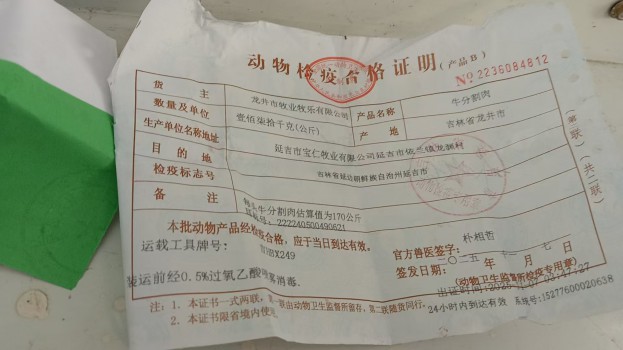 动物检疫合格证明（产品B）
№ 2236084812
货主 龙井市牧业牧乐有限公司 产品名称 牛分割肉
数量及单位 壹佰柒拾千克(公斤) 产地 吉林省龙井市
生产单位名称地址 延吉市宝仁牧业有限公司延吉市依兰镇龙渊村
目的地 吉林省延边朝鲜族自治州延吉市
检疫标志号
备注 每头牛分割肉估算值为170公斤
222240500490621
本批动物产品经检疫合格，应于当日到达有效。
官方兽医签字： 朴相哲
运载工具牌号：
签发日期：二〇二五年十一月七日
装运前经0.5%过氧乙酸喷雾消毒.
（动物卫生监督所检疫专用章）
注：1. 本证书一式两联，第一联由动物卫生监督所留存，第二联随货同行。
24小时内到达有效 系统号:15277600020638
2. 本证书限省境内使用
（第 联）（共二联）